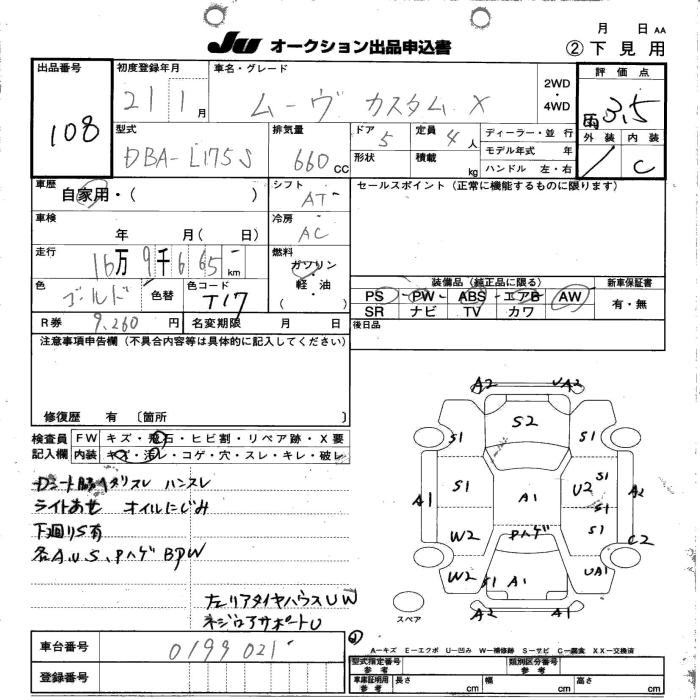 月 日 AA
JU オークション出品申込書 ②下見用
出品番号 108
初度登録年月 21 1 月
車名・グレード ムーヴ カスタム X
2WD・4WD
評価点 雨 3.5
外装 / 内装 C
型式 DBA-L175S
排気量 660 CC
ドア 5
形状
定員 4 人
積載 kg
ディーラー・並行
モデル年式 年
ハンドル 左・右
車歴 自家用・( )
シフト AT
セールスポイント(正常に機能するものに限ります)
車検 年 月( 日)
冷房 AC
走行 16万 9千 6 65 km
燃料 ガソリン・軽油・( )
色 ゴールド 色替
色コード T17
装備品(純正品に限る) 新車保証書
PS・PW・ABS・エアB AW 有・無
SR ナビ TV カワ
R券 9,260 円 名変期限 月 日
後日品
注意事項申告欄(不具合内容等は具体的に記入してください)
修復歴 有 〔箇所 〕
検査員記入欄 FW キズ・飛石・ヒビ割・リペア跡・X要
内装 キズ・汚レ・コゲ・穴・スレ・キレ・破レ
ハンスレ
ライトあせ オイルにじみ
下廻りS有
各A.U.S.Pハゲ BPW
左リアタイヤハウスUW
A2 UA2
S2
S1 S1
A1 S1 A1 U2 S1 A2
S1
W2 Pハゲ C2
W2 S1 A1 UA1
A2 A1
スペア
A-キズ E-エクボ U-凹み W-補修跡 S-サビ C-腐食 XX-交換済
車台番号 0199021
登録番号
型式指定番号 参考 類別区分番号 参考
車庫証明用 参考 長さ cm 幅 cm 高さ cm